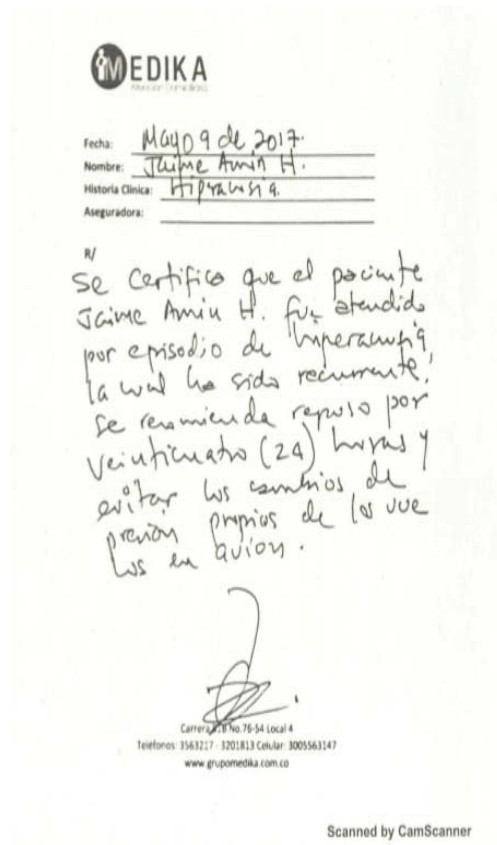 MEDIKA
Fecha: Mayo 9 de 2017.
Nombre: Jaime Amin H.
Historia Clínica: Hiperacusia.
Aseguradora:
R/
Se certifica que el paciente
Jaime Amin H. fue atendido
por episodio de hiperacusia,
la cual ha sido recurrente,
se recomienda reposo por
veinticuatro (24) horas y
evitar los cambios de
presion propios de los vue
los en avion.
No.76-54 Local 4
Teléfonos: 3563217 - 3201813 Celular: 3005563147
www.grupomedika.com.co
Scanned by CamScanner